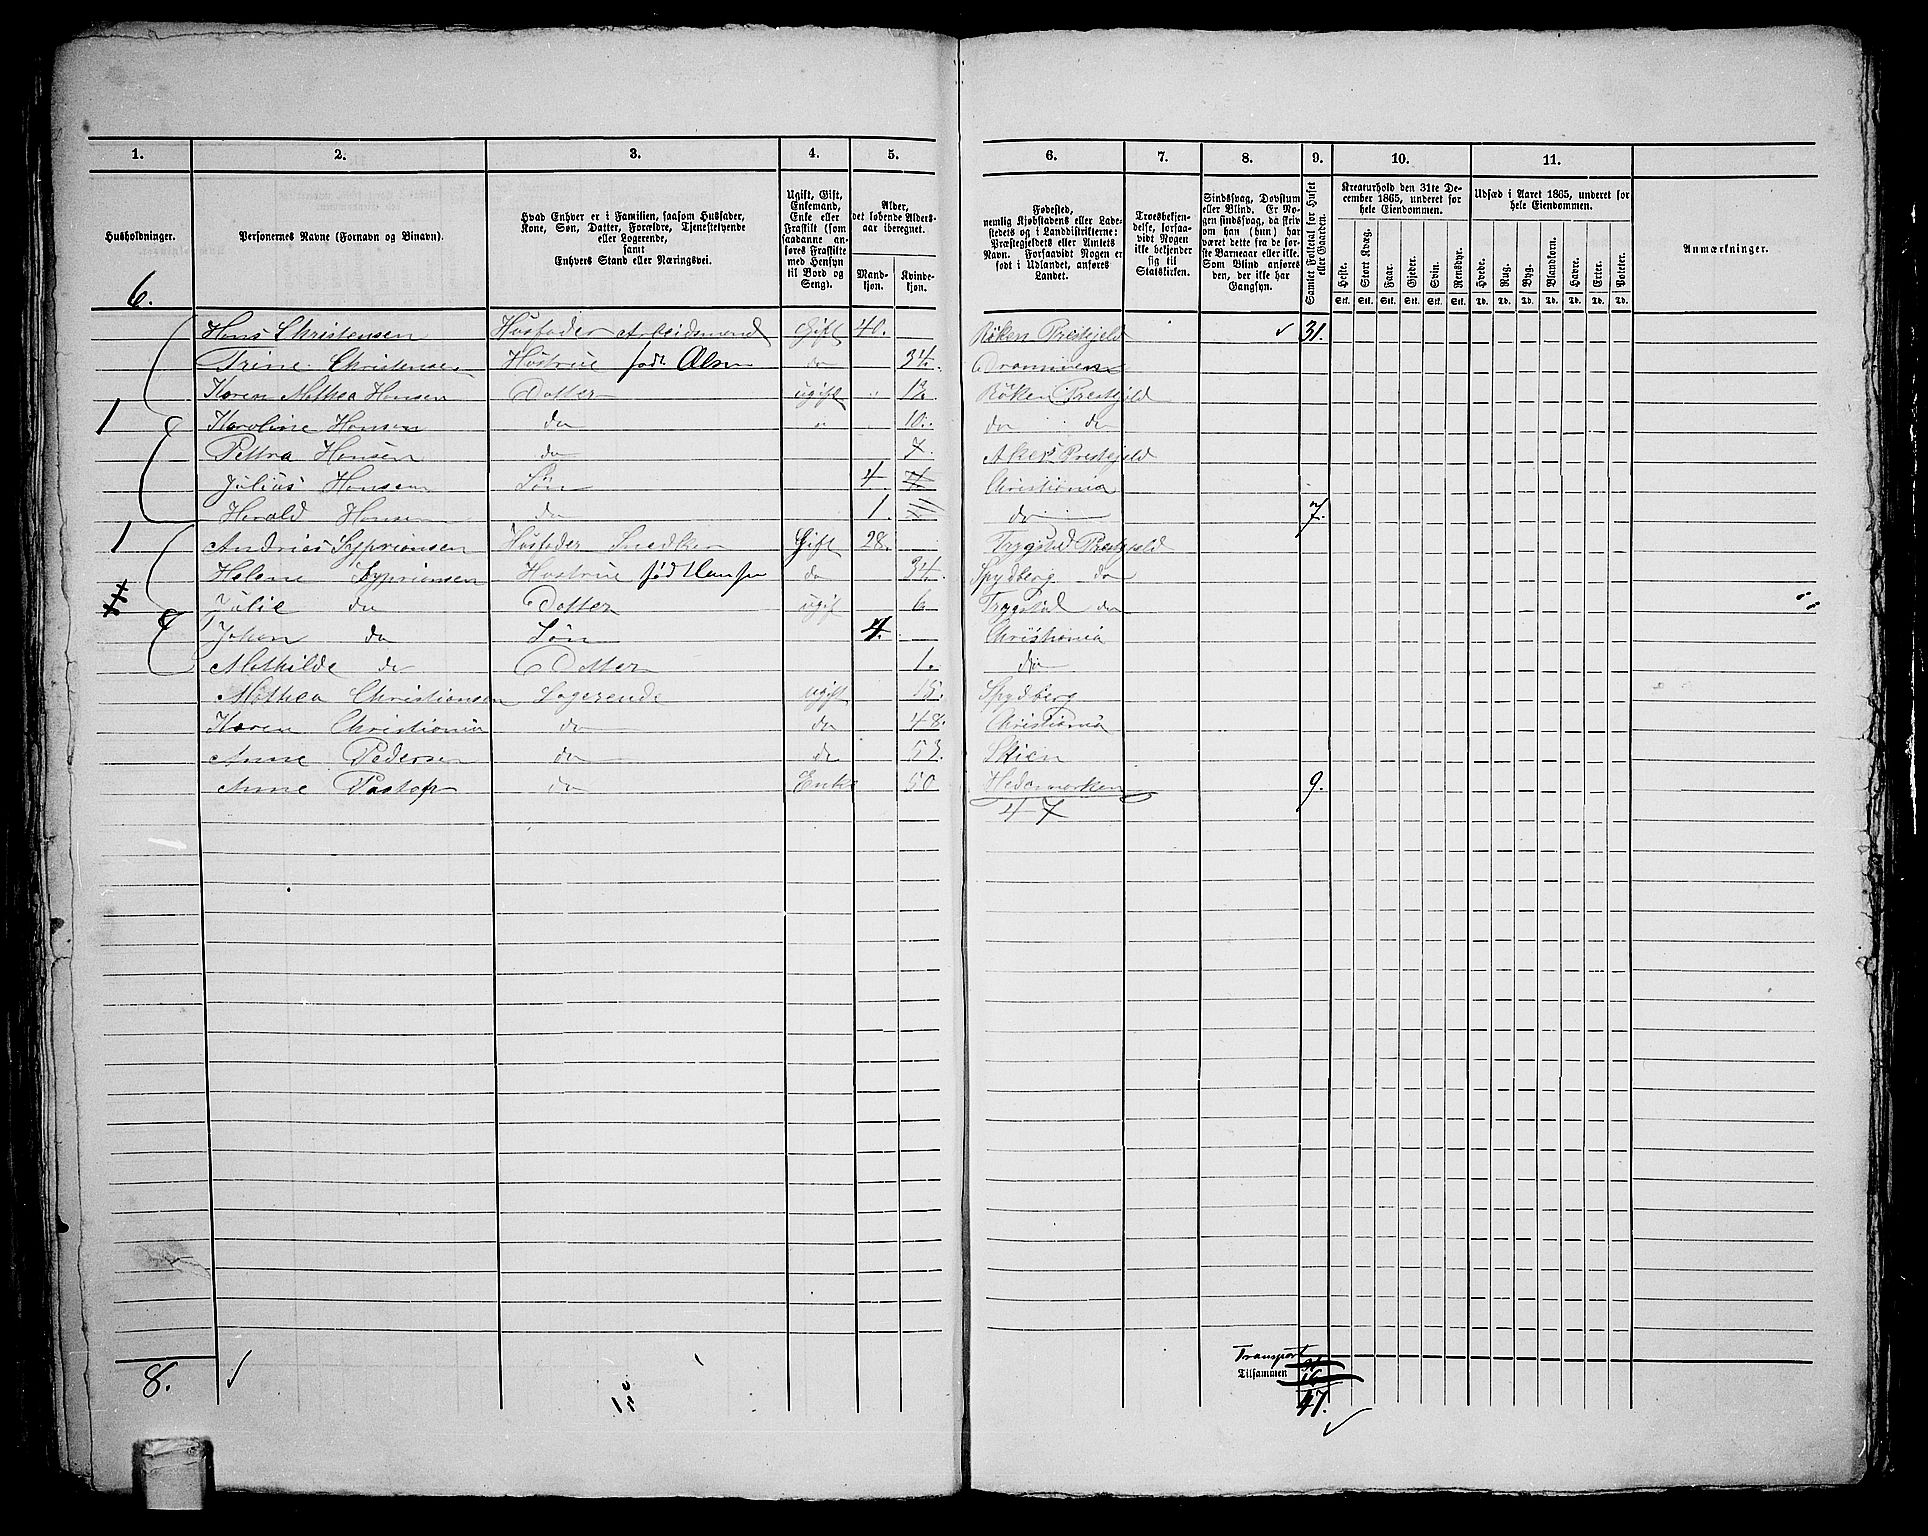 1. 2. 3. 4. 5. 6. 7. 8. 9. 10. 11.
Husholdninger.
Personernes Navne (Fornavn og Binavn).
Hvad Enhver er i Familien, saasom Husfader,
Kone, Søn, Datter, Forældre, Tjenestetyende
eller Logerende,
samt
Enhvers Stand eller Næringsvei.
Ugift, Gift,
Enkemand,
Enke eller
Fraskilt (som
saadanne an-
føres Fraskilte
med Hensyn
til Bord og
Seng).
Alder,
det løbende Alders-
aar iberegnet.
Mand-
kjøn.
Kvinde-
kjøn.
Fødested,
nemlig Kjøbstadens eller Lade-
stedets og i Landdistrikterne:
Præstegjeldets eller Amtets
Navn. Forsaavidt Nogen er
født i Udlandet, anføres
Landet.
Troesbekjen-
delse, forsaa-
vidt Nogen
ikke bekjender
sig til
Statskirken.
Sindssvag, Døvstum
eller Blind. Er No-
gen sindssvag, da skriv
om han (hun) har
været dette fra de før-
ste Barneaar eller ikke.
Som Blind anføres
den, der ikke har
Gangsyn.
Samlet Folketal for Huset
eller Gaarden.
Kreaturhold den 31te De-
cember 1865, underet for
hele Eiendommen.
Heste. Stort Kvæg. Faar. Gjeder. Svin. Rensdyr.
Stk. Stk. Stk. Stk. Stk. Stk.
Udsæd i Aaret 1865, underet for
hele Eiendommen.
Hvede. Rug. Byg. Blandkorn. Havre. Erter. Poteter.
Td. Td. Td. Td. Td. Td. Td.
Anmærkninger.
6.
Hans Christensen Husfader Arbeidsmand Gift 40. Røken Prestejeld 31.
Trine Christensen Hustrue født Olsen do 34. Drammen
Karen Mathea Hansen Datter ugift 12. Røken Prestejeld
1 Karoline Hansen do " 10. do do
Pettra Hansen do 7. Akers Prestejeld
Julius Hansen Søn 4. Christiania
Harald Hansen do 1. do 7.
1 Andrias Syprionsen Husfader Snedker Gift 28. Trygstad Prestejeld
Helene Syprionsen Hustrue født Hansen do 34. Spydberg do
Julie do Datter ugift 6 Trygstad do
Johan do Søn 4. Christiania
Mathilde do Datter 1. do
Mathea Christiansen Logerende ugift 15. Spydberg
Karen Christiania do do 48. Christiania
Anne Pedersen do do 53. Skien
Anne Pastop do Enke 50 Hedemarken 9.
47
Transport 31
Tilsammen 16
47.
8.